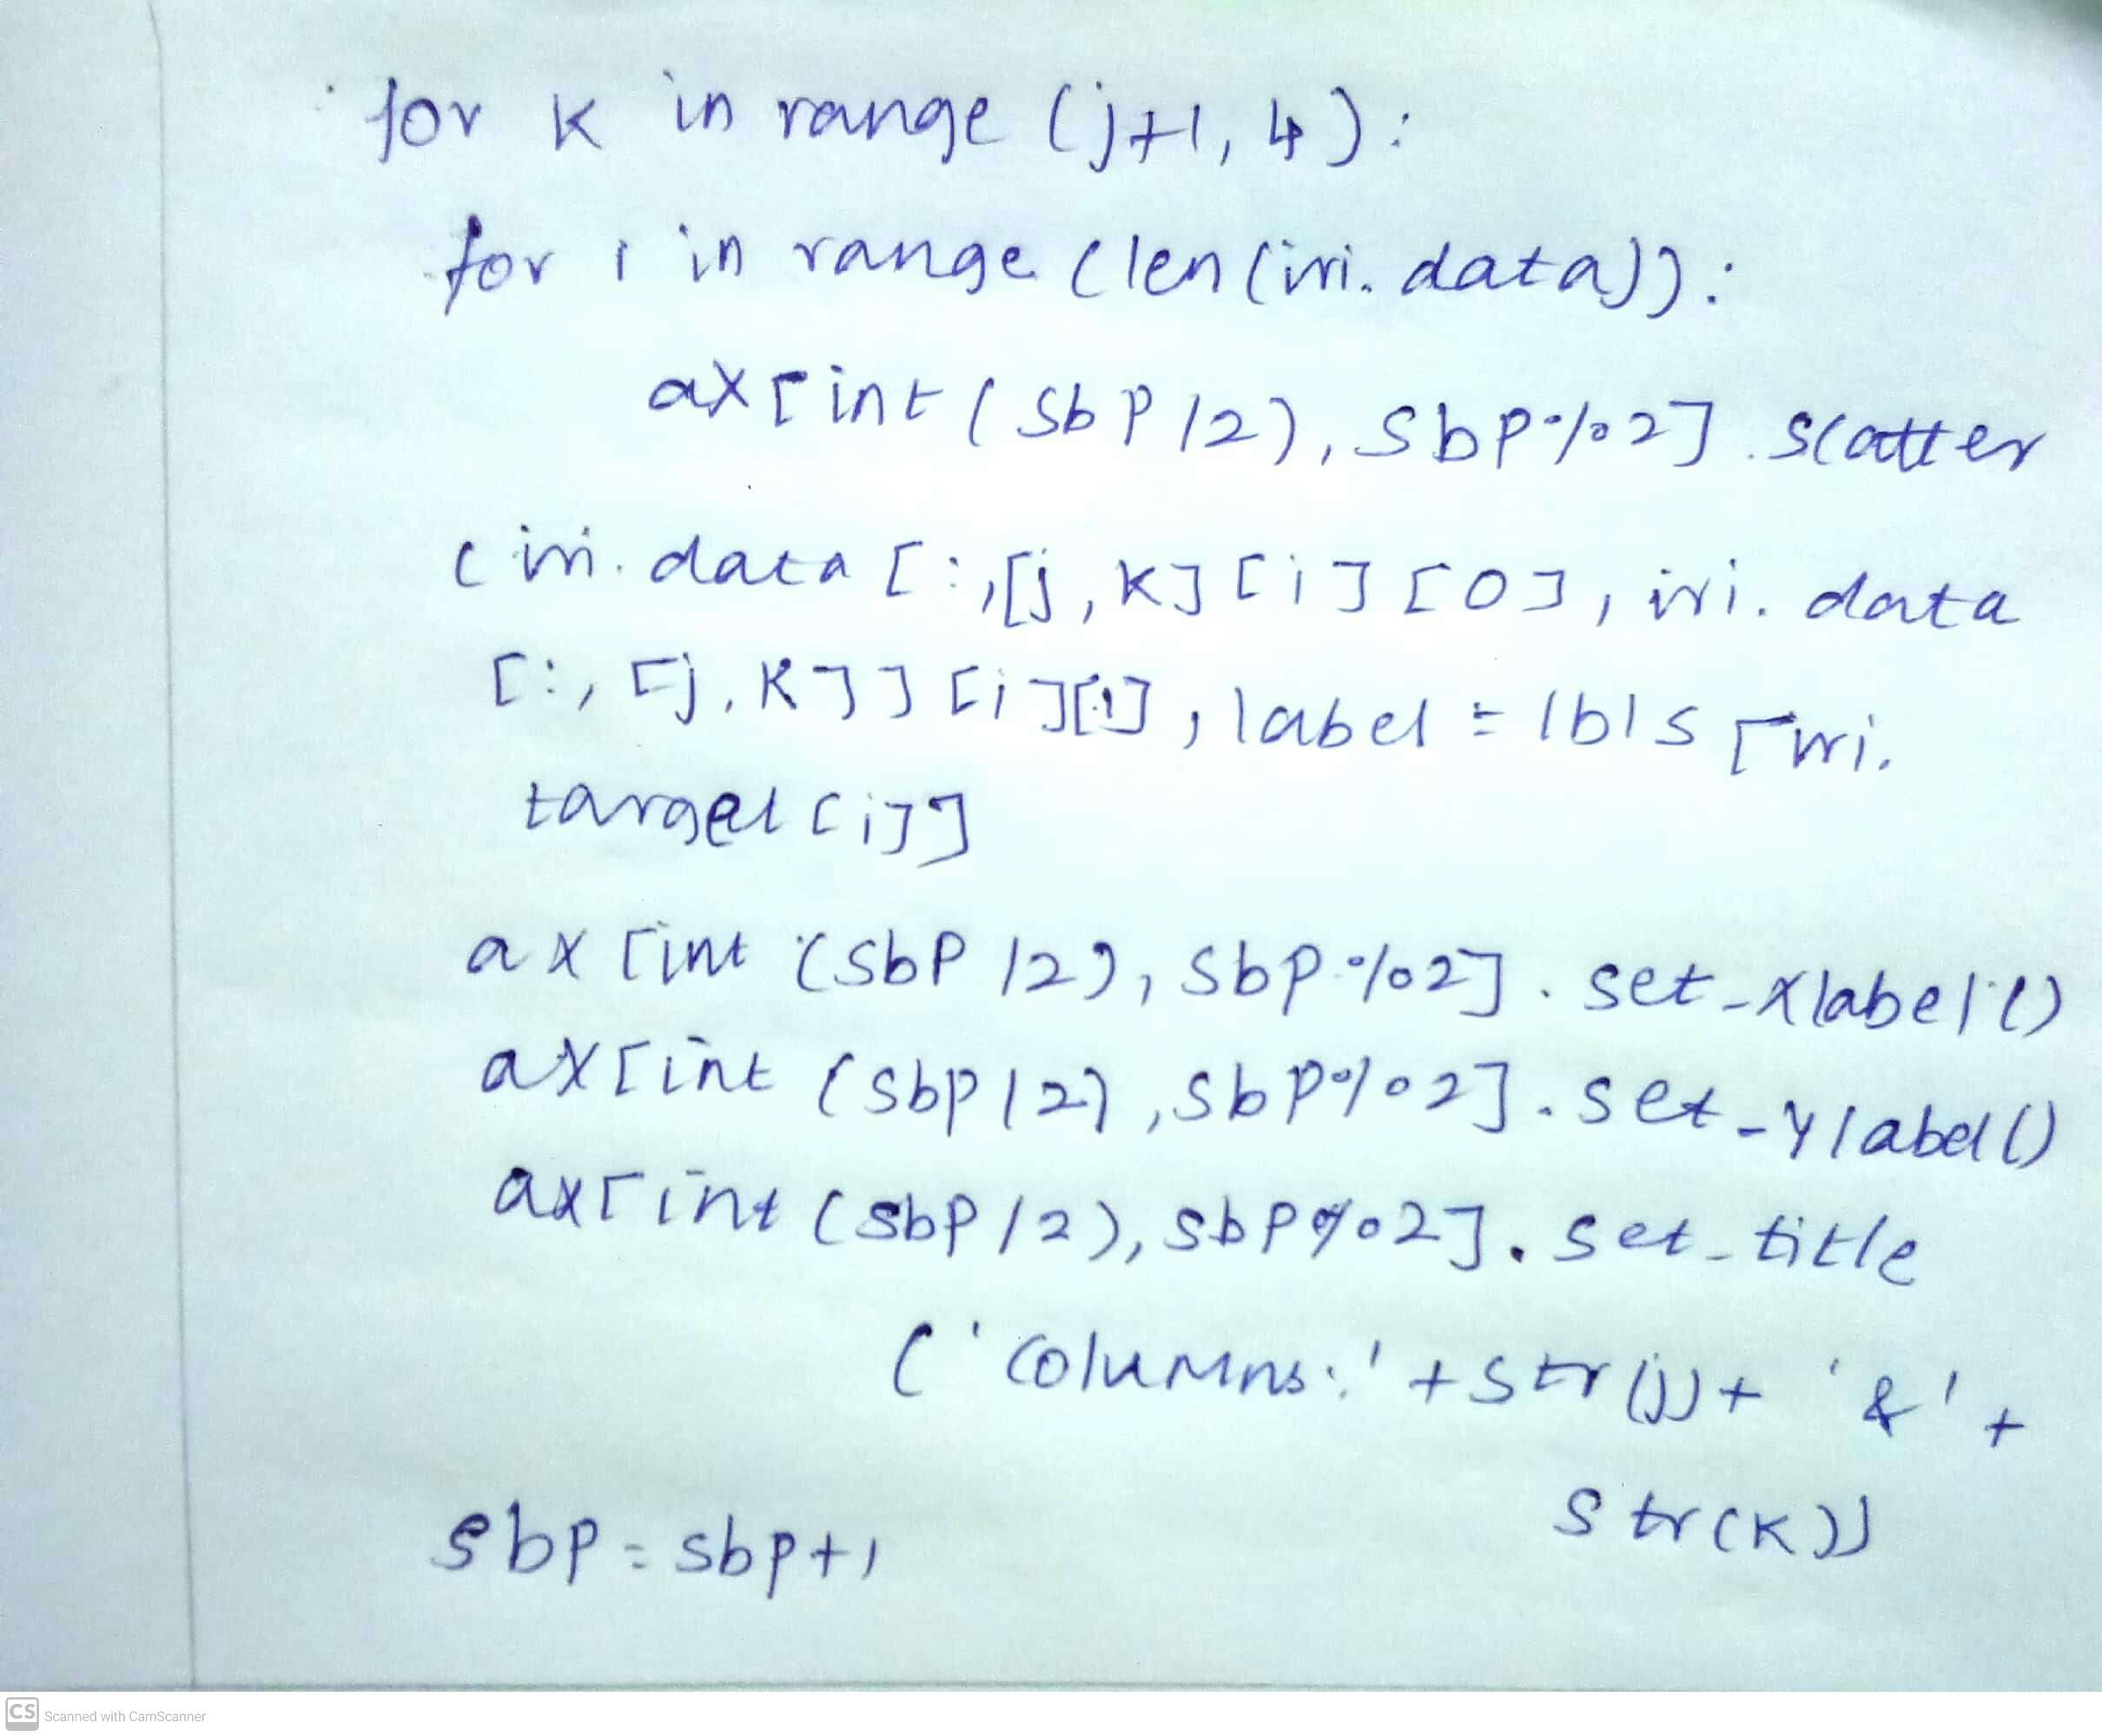 for k in range (j+1, 4):
for i in range (len(iri.data)):
ax[int(sbp/2), sbp%2].scatter
(iri.data[:,[j,k][i][0], iri.data
[:,[j,k]][i][1], label = lbls[iri.
target[i]]
ax[int(sbp/2), sbp%2].set_xlabel()
ax[int(sbp/2), sbp%2].set_ylabel()
ax[int(sbp/2), sbp%2].set_title
('columns:'+str(j)+'&'+
str(k))
sbp=sbp+1
CS Scanned with CamScanner